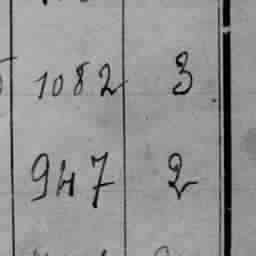 1082 3
947 2